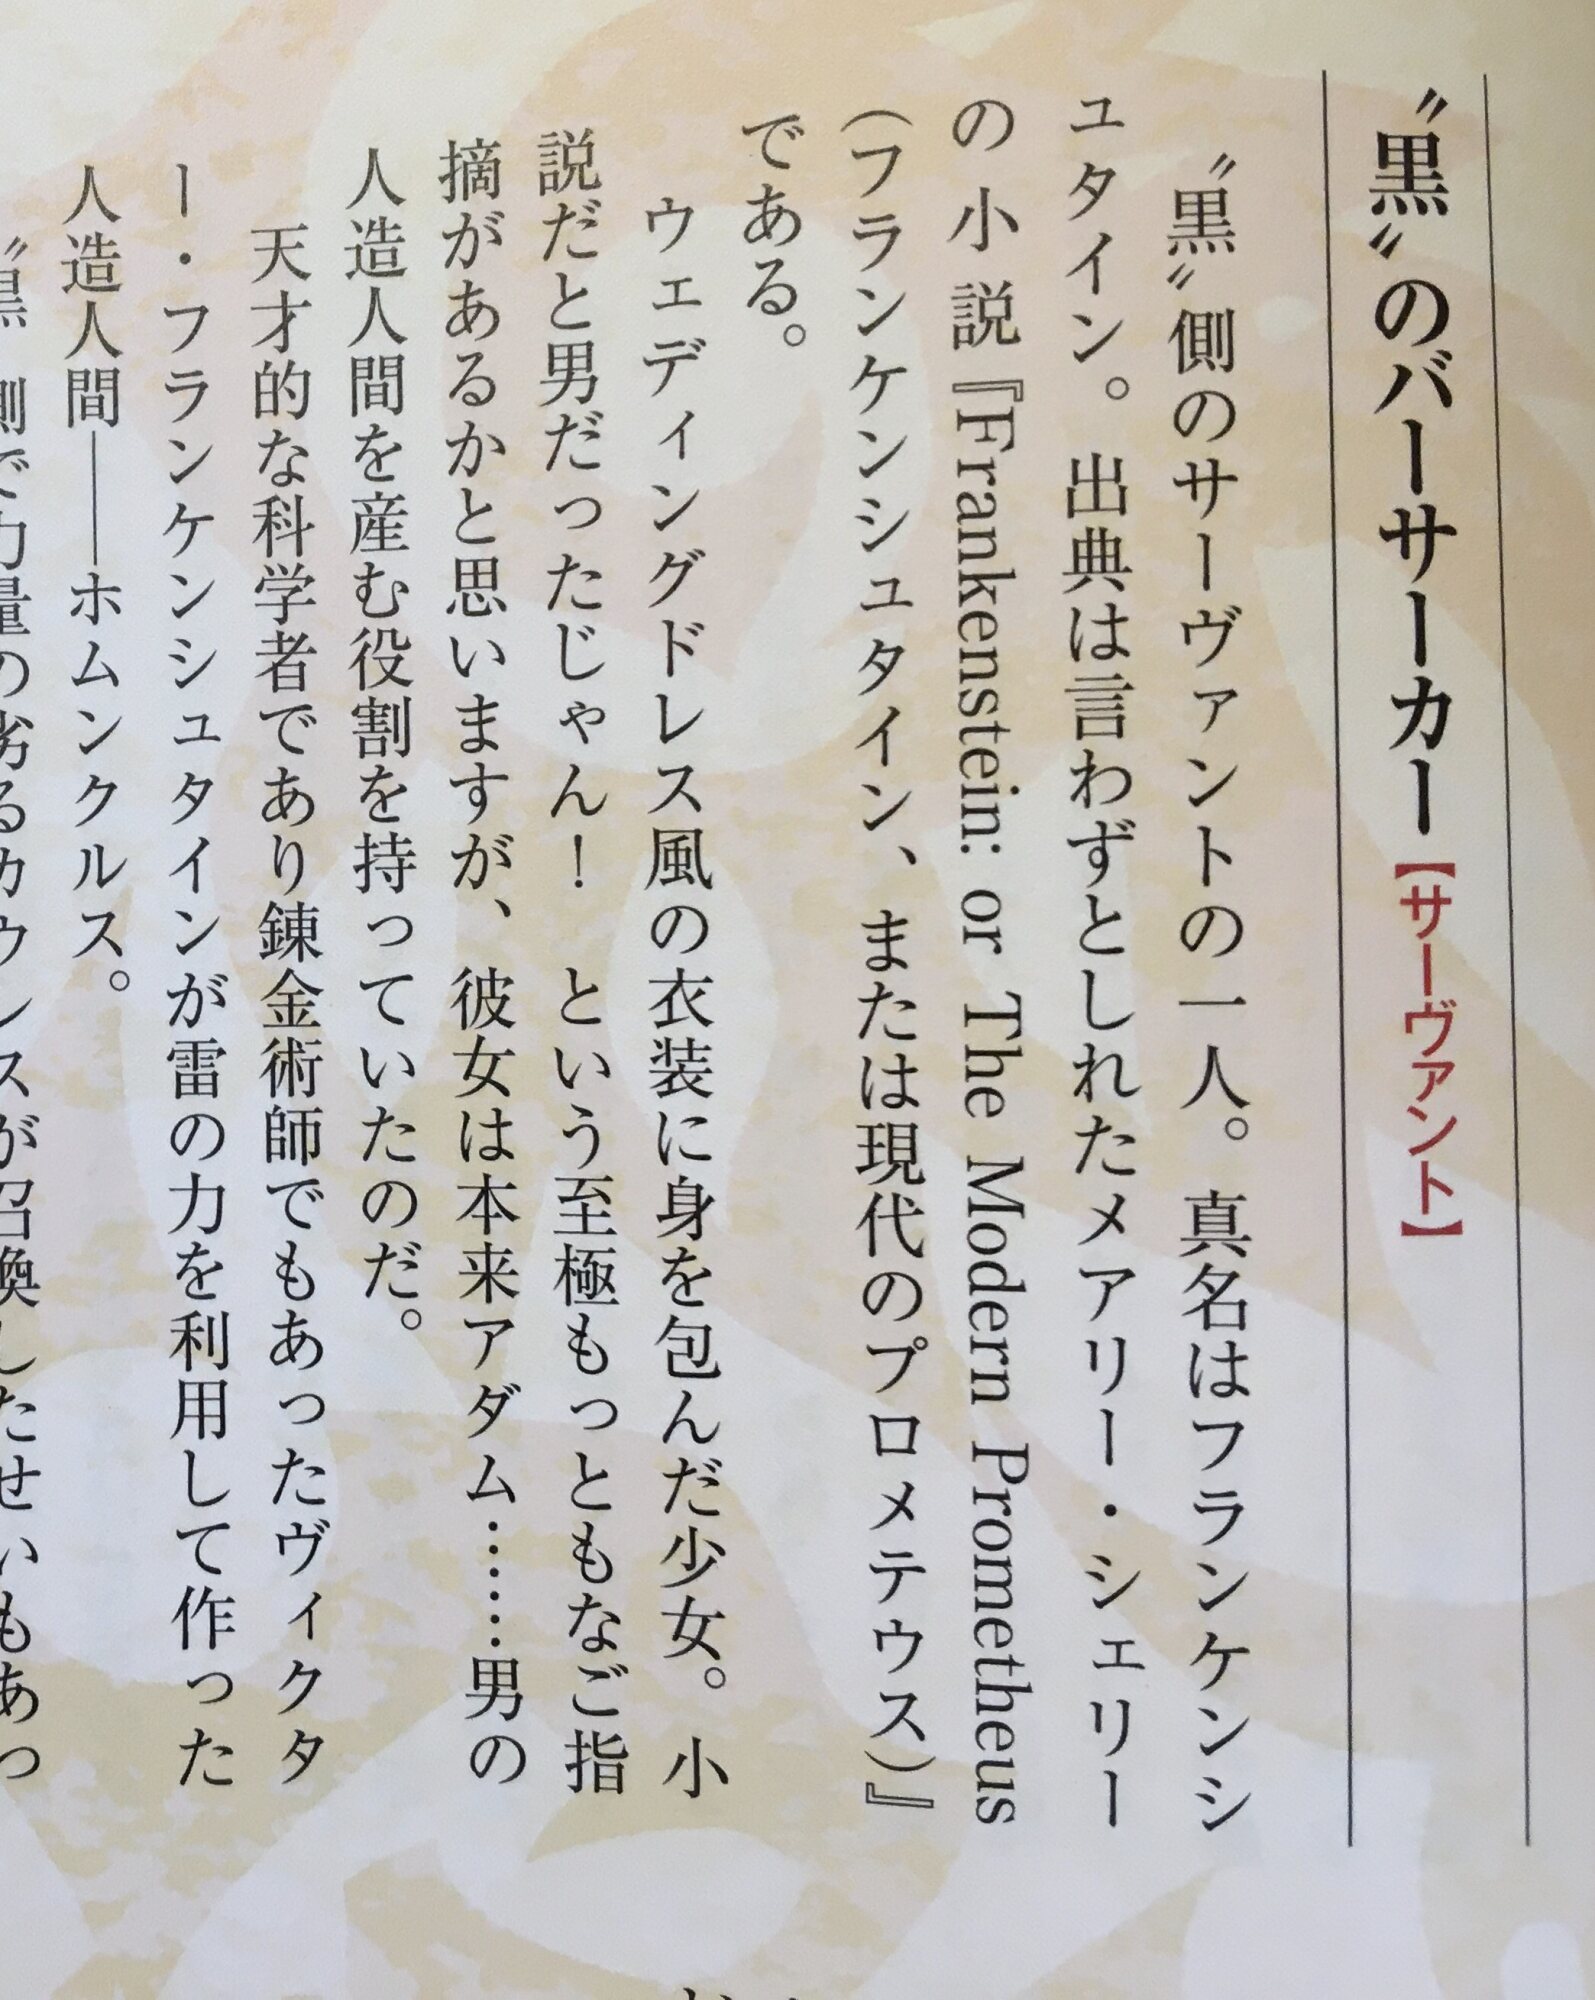 〝黒〟のバーサーカー【サーヴァント】
〝黒〟側のサーヴァントの一人。真名はフランケンシ
ュタイン。出典は言わずとしれたメアリー・シェリー
の小説『Frankenstein: or The Modern Prometheus
(フランケンシュタイン、または現代のプロメテウス)』
である。
ウェディングドレス風の衣装に身を包んだ少女。小
説だと男だったじゃん! という至極もっともなご指
摘があるかと思いますが、彼女は本来アダム……男の
人造人間を産む役割を持っていたのだ。
天才的な科学者であり錬金術師でもあったヴィクタ
ー・フランケンシュタインが雷の力を利用して作った
人造人間――ホムンクルス。
〝黒〟側で力量の劣るカウレスが召喚したせいもあっ